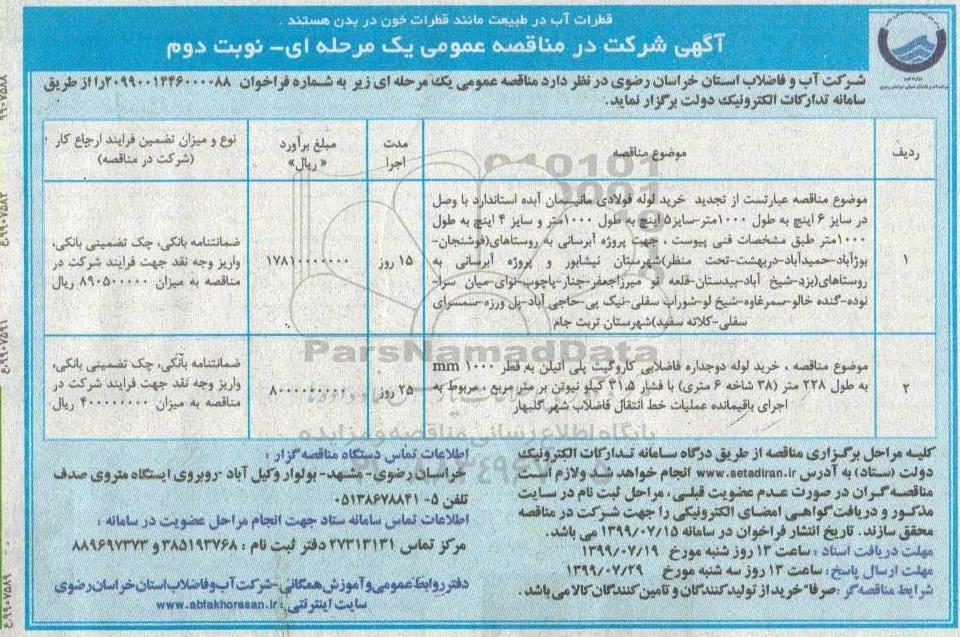 قطرات آب در طبیعت مانند قطرات خون در بدن هستند .
آگهی شرکت در مناقصه عمومی یک مرحله ای- نوبت دوم
شرکت آب و فاضلاب استان خراسان رضوی در نظر دارد مناقصه عمومی یک مرحله ای زیر به شماره فراخوان ۲۰۹۹۰۰۱۴۴۶۰۰۰۰۸۸ را از طریق
سامانه تدارکات الکترونیک دولت برگزار نماید.
ردیف
موضوع مناقصه
مدت
اجرا
مبلغ برآورد
« ریال»
نوع و میزان تضمین فرایند ارجاع کار
(شرکت در مناقصه)
۱
موضوع مناقصه عبارتست از تجدید خرید لوله فولادی مانیسمان آبده استاندارد با وصل
در سایز ۶ اینچ به طول ۱۰۰۰متر-سایز۵ اینچ به طول ۱۰۰۰متر و سایز ۴ اینچ به طول
۱۰۰۰متر طبق مشخصات فنی پیوست ، جهت پروژه آبرسانی به روستاهای(فوشنجان-
بوژآباد-حمیدآباد-دربهشت-تحت منظر)شهرستان نیشابور و پروژه آبرسانی به
روستاهای(یزد-شیخ آباد-بیدستان-قلعه نو میرزاجعفر-چنار-پاچوب-نوای-میان سرا-
نوده-گنده خالو-سمرغاوه-شیخ لو-شوراب سفلی-نیک پی-حاجی آباد-پل ورزه-سمسرای
سفلی-کلاته سفید)شهرستان تربت جام
۱۵ روز
۱۷۸۱۰۰۰۰۰۰۰
ضمانتنامه بانکی، چک تضمینی بانکی،
واریز وجه نقد جهت فرایند شرکت در
مناقصه به میزان ۸۹۰۵۰۰۰۰۰ ریال
۲
موضوع مناقصه ، خرید لوله دوجداره فاضلابی کاروگیت پلی اتیلن به قطر ۱۰۰۰ mm
به طول ۲۲۸ متر (۳۸ شاخه ۶ متری) با فشار ۳۱،۵ کیلو نیوتن بر متر مربع ، مربوط به
اجرای باقیمانده عملیات خط انتقال فاضلاب شهر گلبهار
۲۵ روز
۸۰۰۰۰۰۰۰۰۰
ضمانتنامه بانکی، چک تضمینی بانکی،
واریز وجه نقد جهت فرایند شرکت در
مناقصه به میزان ۴۰۰۰۰۰۰۰۰ ریال
ParsNamadData
پایگاه اطلاع رسانی مناقصه و مزایده
کلیه مراحل برگزاری مناقصه از طریق درگاه سامانه تدارکات الکترونیک
دولت (ستاد) به آدرس www.setadiran.ir انجام خواهد شد ولازم است
مناقصه گران در صورت عدم عضویت قبلی، مراحل ثبت نام در سایت
مذکور و دریافت گواهی امضای الکترونیکی را جهت شرکت در مناقصه
محقق سازند. تاریخ انتشار فراخوان در سامانه ۱۳۹۹/۰۷/۱۵ می باشد.
مهلت دریافت اسناد : ساعت ۱۳ روز شنبه مورخ ۱۳۹۹/۰۷/۱۹
مهلت ارسال پاسخ: ساعت ۱۳ روز سه شنبه مورخ ۱۳۹۹/۰۷/۲۹
شرایط مناقصه گر :صرفا" خرید از تولید کنندگان و تامین کنندگان کالا می باشد .
اطلاعات تماس دستگاه مناقصه گزار :
خراسان رضوی-مشهد- بولوار وکیل آباد -روبروی ایستگاه متروی صدف
تلفن ۵- ۰۵۱۳۸۶۷۸۸۴۱
اطلاعات تماس سامانه ستاد جهت انجام مراحل عضویت در سامانه :
مرکز تماس ۲۷۳۱۳۱۳۱ دفتر ثبت نام : ۳۸۵۱۹۳۷۶۸ و ۸۸۹۶۹۷۳۷۳
دفتر روابط عمومی و آموزش همگانی -شرکت آب و فاضلاب استان خراسان رضوی
سایت اینترنتی : www.abfakhorasan.ir